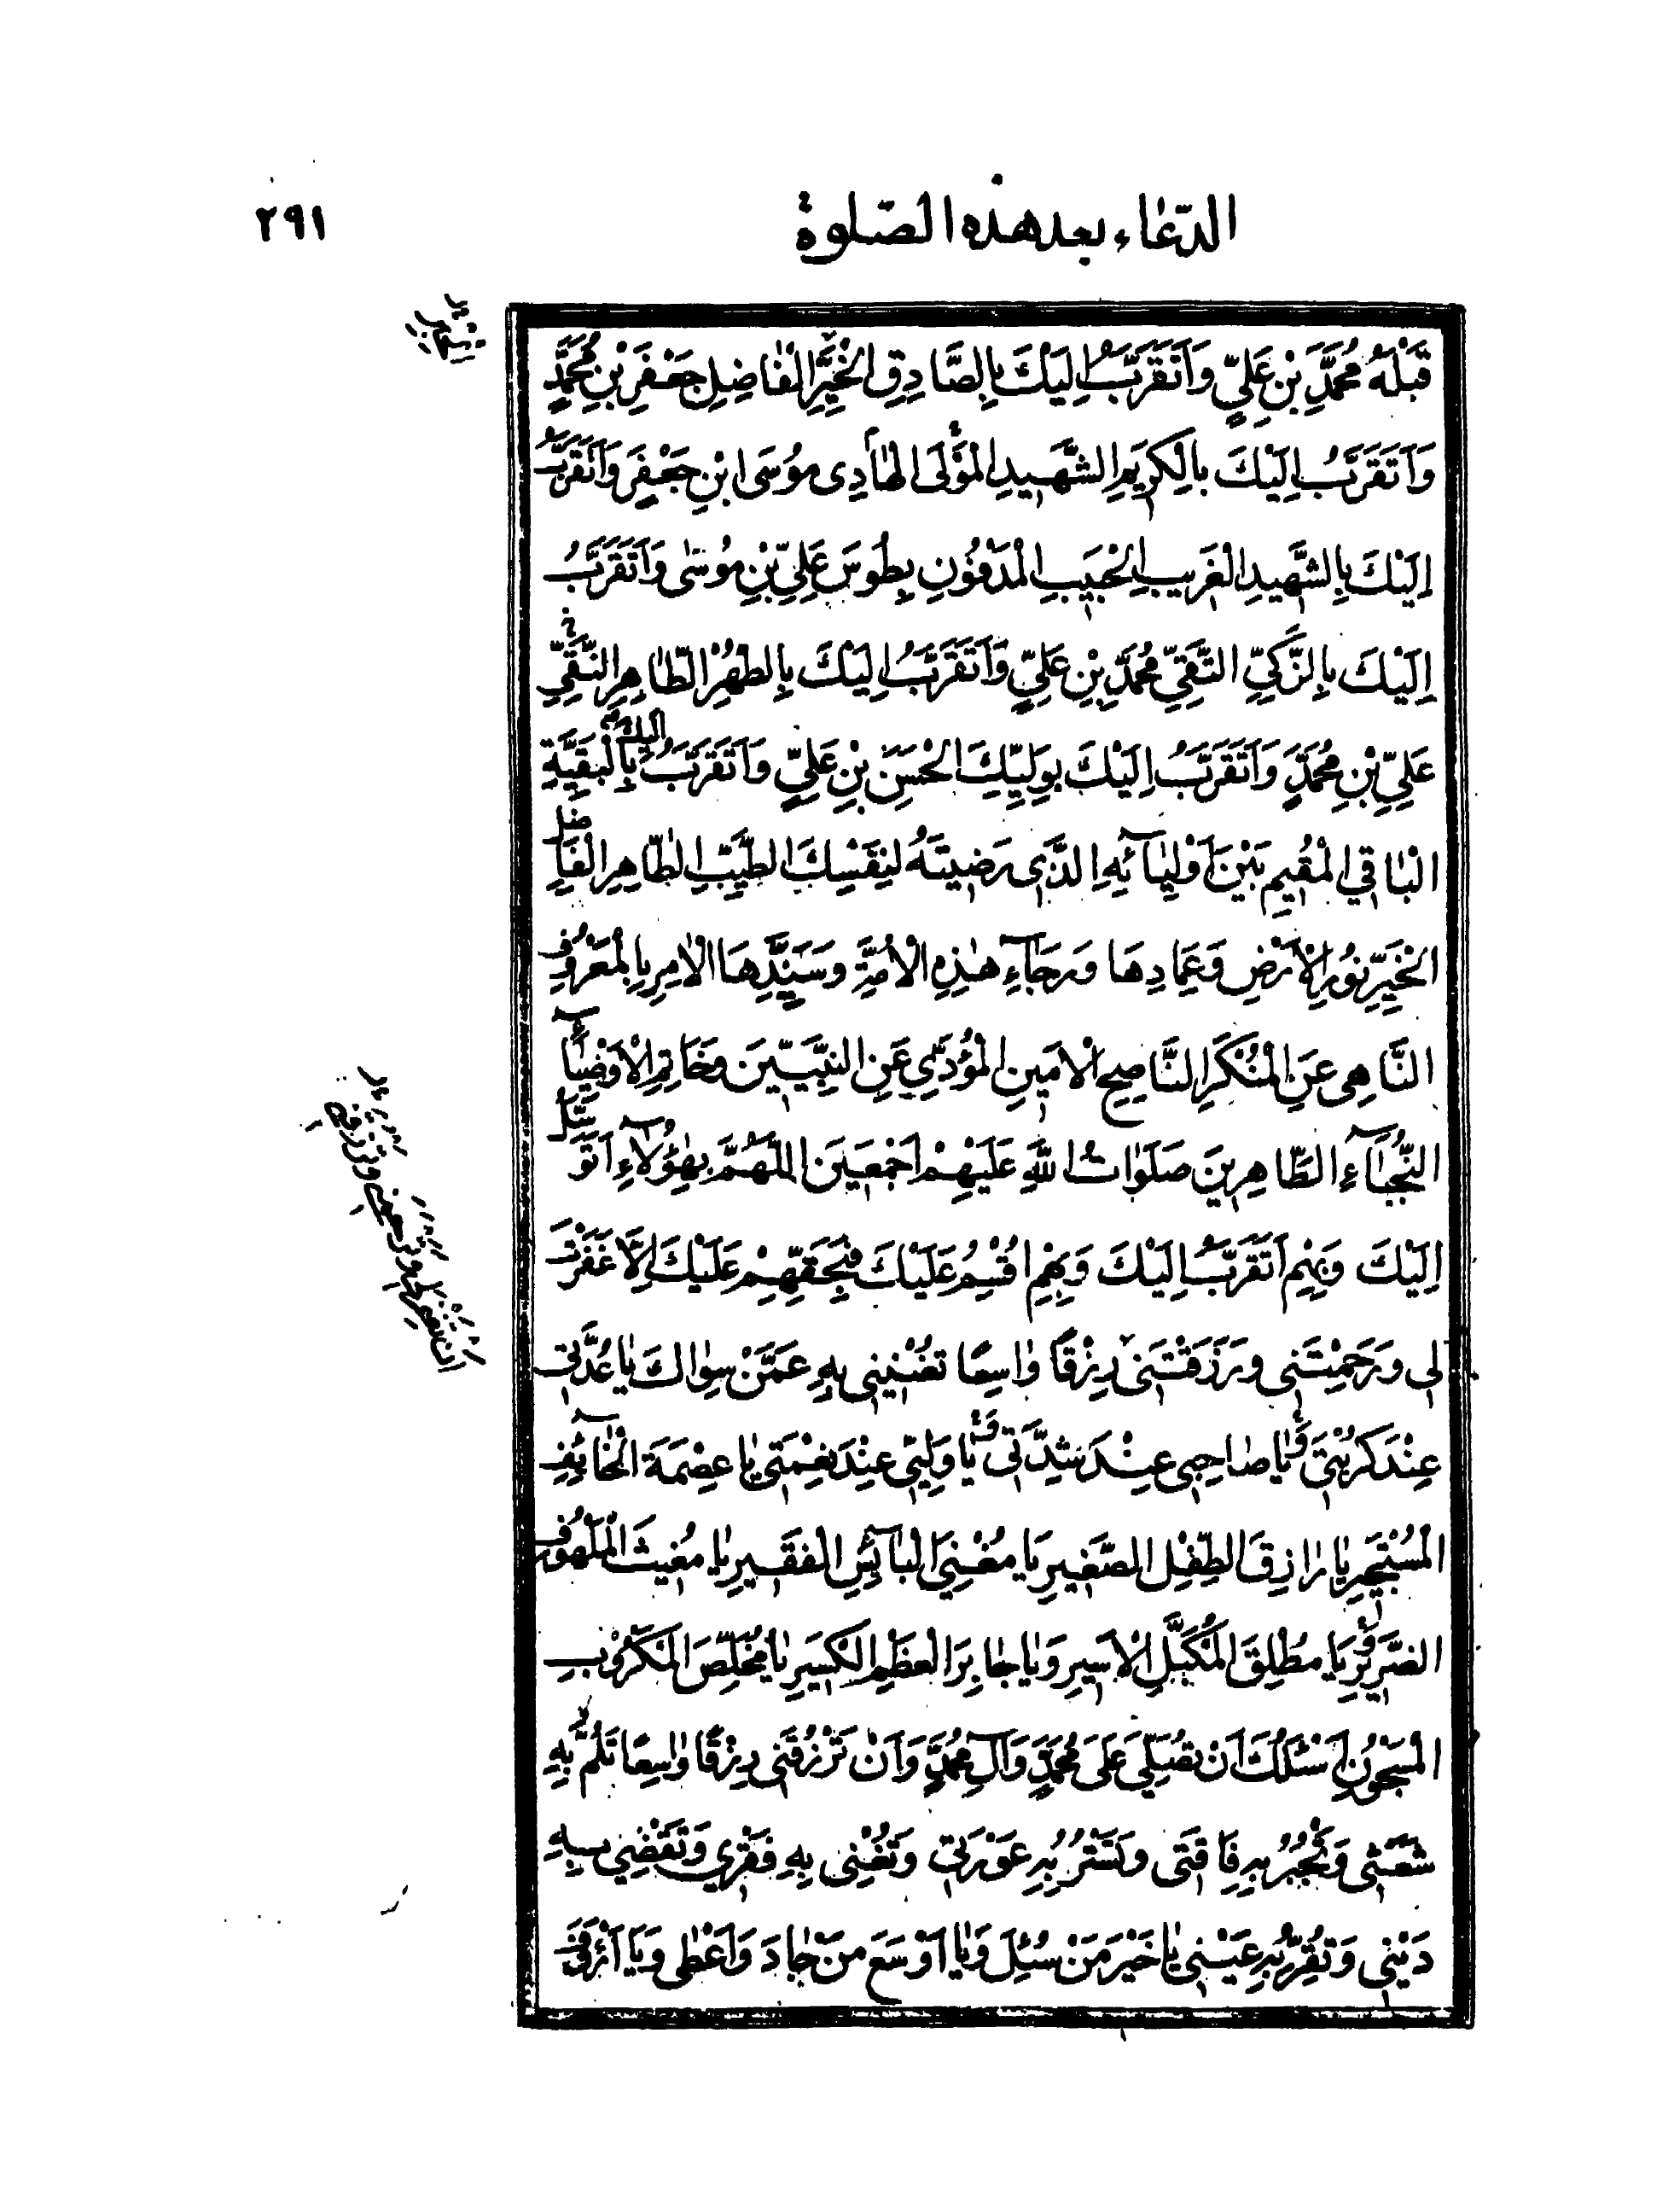 الدّعاء بعد هذه الصّلوة
٢٩١
قَبْلَهُ مُحَمَّدِ بْنِ عَلِيٍّ وَاَتَقَرَّبُ اِلَيْكَ بِالصَّادِقِ الْخَيِّرِ الْفاضِلِ جَعْفَرِ بْنِ مُحَمَّدٍ
وَاَتَقَرَّبُ اِلَيْكَ بِالْكَرِيمِ الشَّهِيدِ الْمَوْلَى الْهادِى مُوسَى ابْنِ جَعْفَرٍ وَاَتَقَرَّبُ
اِلَيْكَ بِالشَّهِيدِ الْغَرِيبِ الْحَبِيبِ الْمَدْفُونِ بِطُوسَ عَلِيِّ بْنِ مُوسٰى وَاَتَقَرَّبُ
اِلَيْكَ بِالزَّكِيِّ التَّقِيِّ مُحَمَّدِ بْنِ عَلِيٍّ وَاَتَقَرَّبُ اِلَيْكَ بِالطُّهْرِ الطّاهِرِ النَّقِيِّ
عَلِيِّ بْنِ مُحَمَّدٍ وَاَتَقَرَّبُ اِلَيْكَ بِوَلِيِّكَ الْحَسَنِ بْنِ عَلِيٍّ وَاَتَقَرَّبُ اليك بِالْبَقِيَّةِ
الْباقِي الْمُقِيمِ بَيْنَ اَوْلِيآئِهِ الَّذِى رَضِيتَهُ لِنَفْسِكَ الطَّيِّبِ الطّاهِرِ الْفاضل
الْخَيِّرِ نُورِ الْاَرْضِ وَعِمادِها وَرَجآءِ هٰذِهِ الْاُمَّةِ وَسَيِّدِهَا الْاٰمِرِ بِالْمَعْرُوفِ
النّاهِى عَنِ الْمُنْكَرِ النّاصِحِ الْاَمِينِ الْمُؤَدِّي عَنِ النَّبِيّينَ وَخاتَمِ الْاَوْصِيآءِ
النُّجَبآءِ الطّاهِرِينَ صَلَواتُ اللّٰهِ عَلَيْهِمْ اَجْمَعِينَ اللّٰهُمَّ بِهٰؤُلآءِ اَتَوَسَّلُ
اِلَيْكَ وَبِهِمْ اَتَقَرَّبُ اِلَيْكَ وَبِهِمْ اُقْسِمُ عَلَيْكَ فَبِحَقِّهِمْ عَلَيْكَ اِلّا غَفَرْتَ
لِى وَرَحِمْتَنِى وَرَزَقْتَنِى رِزْقًا واسِعًا تُغْنِينِى بِهِ عَمَّنْ سِواكَ يا عُدَّتِى
عِنْدَ كُرْبَتِى وَيا صاحِبِى عِنْدَ شِدَّتِى وَيا وَلِيِّى عِنْدَ نِعْمَتِى يا عِصْمَةَ الْخآئِفِ
الْمُسْتَجِيرِ يا رازِقَ الطِّفْلِ الصَّغِيرِ يا مُغْنِيَ الْبآئِسِ الْفَقِيرِ يا مُغِيثَ الْمَلْهُوفِ
الضَّرِيرِ يا مُطْلِقَ الْمُكَبَّلِ الْاَسِيرِ وَيا جابِرَ الْعَظْمِ الْكَسِيرِ يا مُخَلِّصَ الْمَكْرُوبِ
الْمَسْجُونِ اَسْئَلُكَ اَنْ تُصَلِّيَ عَلىٰ مُحَمَّدٍ وَآلِ مُحَمَّدٍ وَاَنْ تَرْزُقَنِى رِزْقًا واسِعًا تَلُمُّ بِهِ
شَعَثِى وَتَجْبُرُ بِهِ فاقَتِى وَتَسْتُرُ بِهِ عَوْرَتِى وَتُغْنِى بِهِ فَقْرِي وَتَقْضِي بِهِ
دَيْنِى وَتُقِرُّ بِهِ عَيْنِى يا خَيْرَ مَنْ سُئِلَ وَيا اَوْسَعَ مَنْ جادَ وَاَعْطٰى وَيا اَرْأَفَ
اَنْ تَغْفِرَ لِي وَتَرْحَمَنِي وَتَرْزُقَنِي